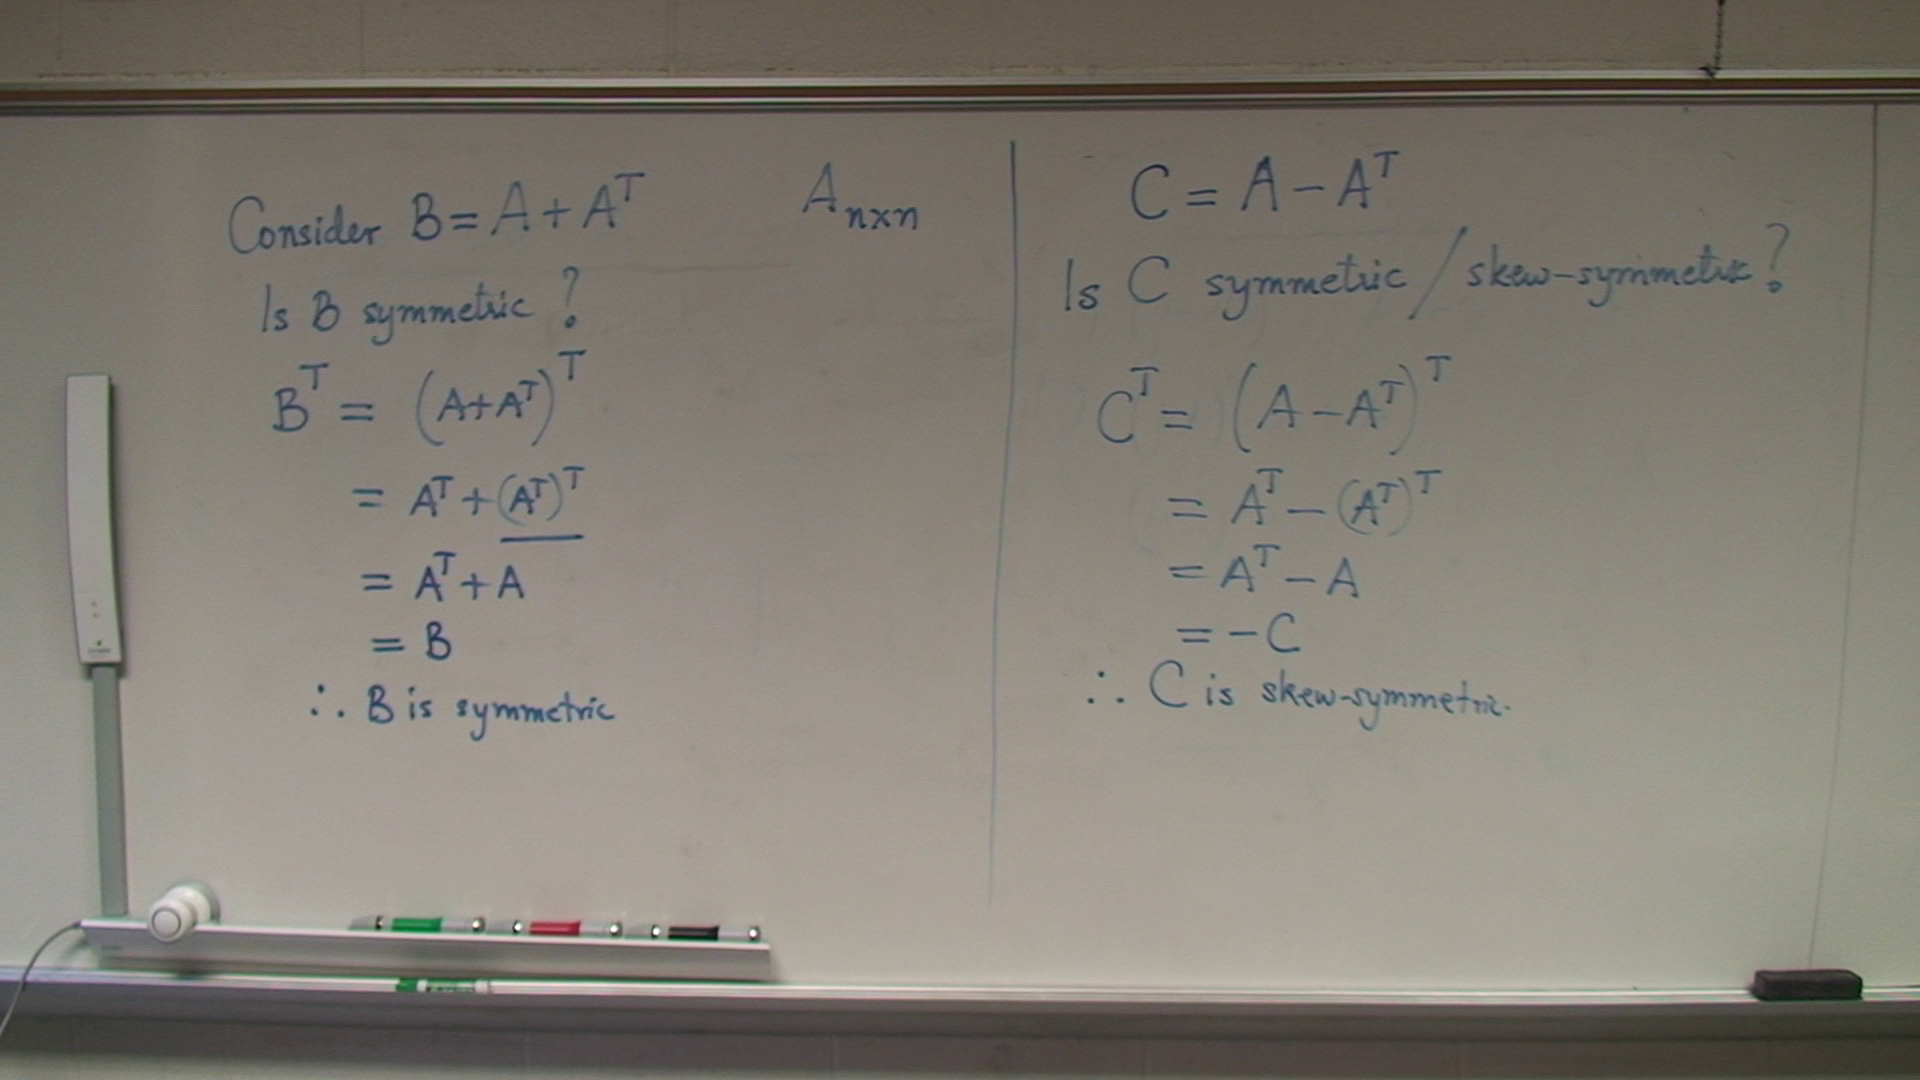 Consider B = A + Aᵀ
A n×n
Is B symmetric ?
Bᵀ = (A+Aᵀ)ᵀ
= Aᵀ + (Aᵀ)ᵀ
= Aᵀ + A
= B
∴ B is symmetric
C = A − Aᵀ
Is C symmetric / skew-symmetric ?
Cᵀ = (A − Aᵀ)ᵀ
= Aᵀ − (Aᵀ)ᵀ
= Aᵀ − A
= −C
∴ C is skew-symmetric.